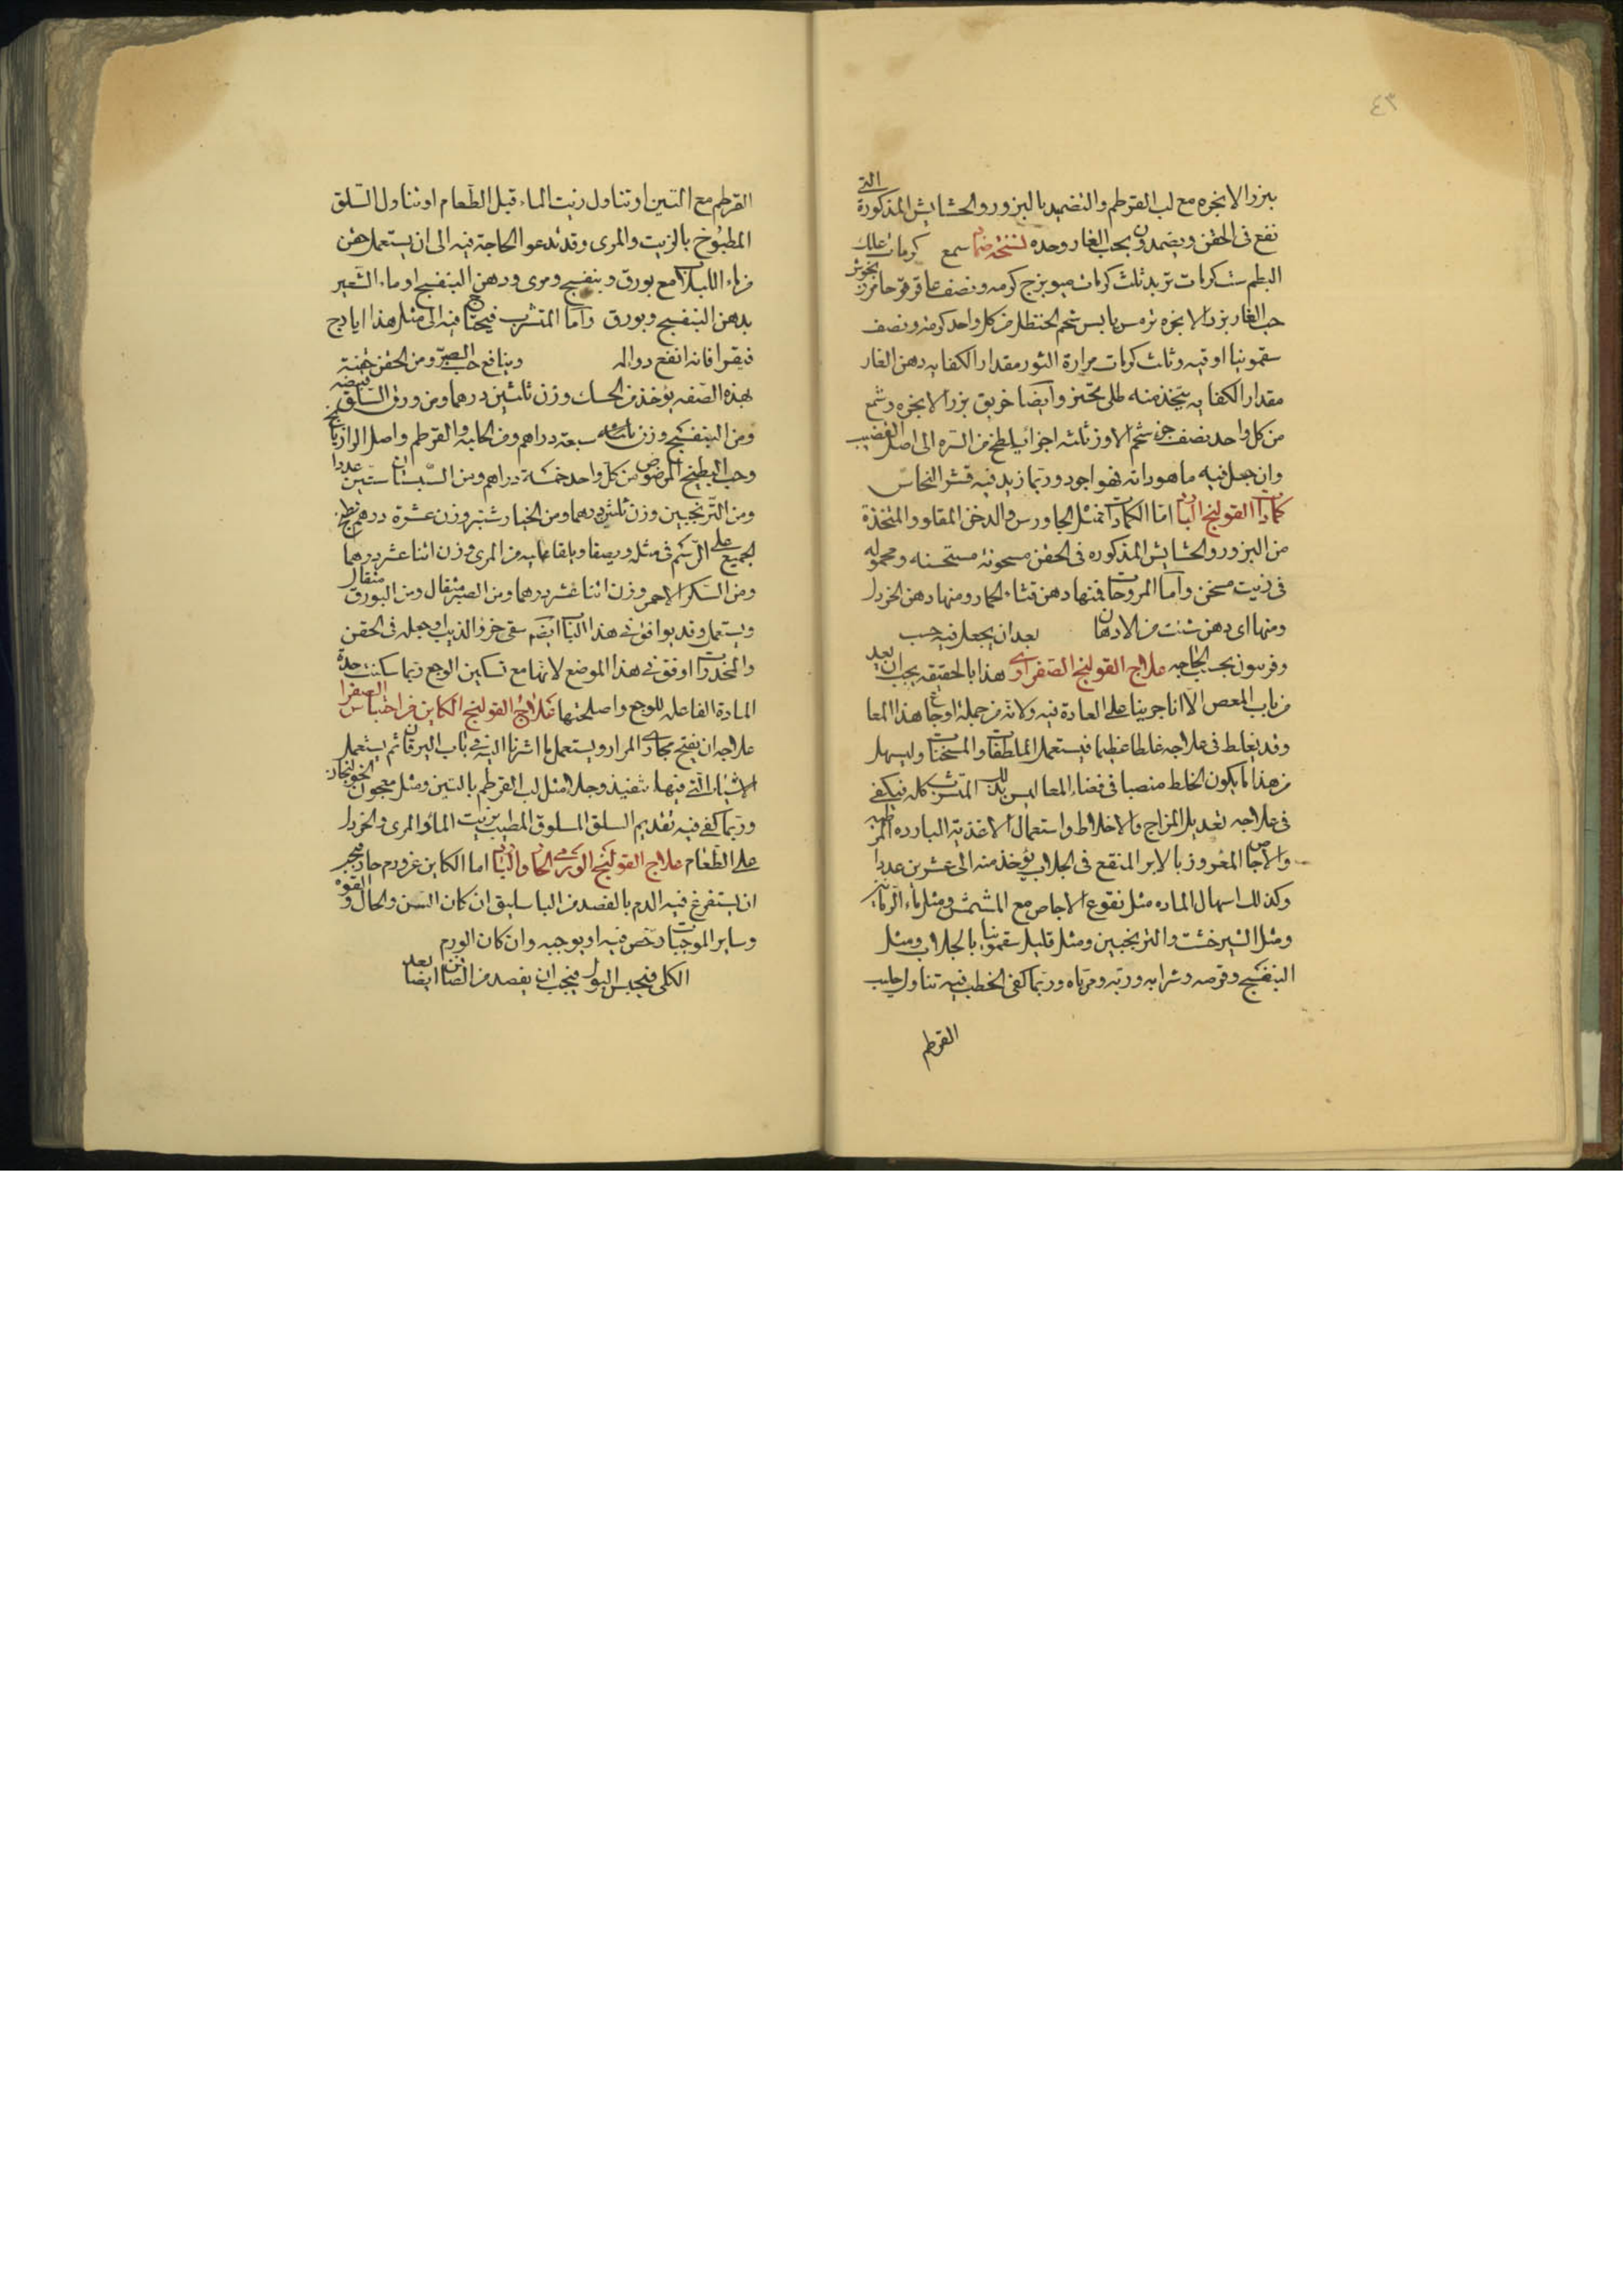 ٤٣
ببزر الانجره مع لب القرطم والتضميد بالبزور والحشايش المذكورة التى
تقع فى الحقن ويضمدون بحب الغار وحده نسخة ضماد شمع كرمات علك
البطم ست كرمات تربد ثلث كرمات ميويزج كرمه ونصف عاقرقرحا
حب الغار بزر الانجره ترمس يابس شحم الحنظل من كل واحد كرمه ونصف
سقمونيا اوقيه وثلث كرمات مرارة الثور مقدار الكفايه دهن الغار
مقدار الكفايه يتخذ منه طلى وايضا خربق بزر الانجره وشمع
من كل واحد نصف جزء شحم الاوز ثلثه اجزا يلطخ من السره الى اصل القضيب
وان جعل فيه ماهودانه فهو اجود وربما زيد فيه قشر النحاس
كمادات القولنج البارد اما الكمادات فمثل الجاورس والدخن المقلو والمتخذة
من البزور والحشايش المذكوره فى الحقن مسحونة مستحسنه ومحموله
فى زيت مسخن واما المروخات فمنها دهن قثاء الحمار ومنها دهن الخردل
ومنها اى دهن شئت من الادهان بعد ان يجعل فيه حب
وفربيون بحب الحاجه علاج القولنج الصفراوى هذا بالحقيقه يجب ان يعد
من باب المغص الا انا جرينا على العادة فيه ولانه من جملة اوجاع هذا المعا
وقد يغلط فى علاجه غلطا عظيما فيستعمل الملطفات والمسخنات وليسهل
من هذا ما يكون الخلط منصبا فى فضاء المعا ليس بذلك المتشرب كله فيكفى
فى علاجه تعديل المزاج والاخلاط واستعمال الاغذية البارده المرطبه
والاجاص المغروز بالابر المنقع فى الجلاب يؤخذ منه الى عشرين عددا
وكذلك اسهال الماده مثل نقوع الاجاص مع المشمش ومثل ماء الرمانين
ومثل الشيرخشت والترنجبين ومثل قليل سقمونيا بالجلاب ومثل
البنفسج وقرصه وشرابه وربه ومرباه وربما كفى الخطب فيه تناول حليب
القرطم
القرطم مع التين او تناول زيت الماء قبل الطعام او تناول السلق
المطبوخ بالزيت والمرى وقد تدعو الحاجة فيه الى ان يستعمل حقن
من ماء اللبلاب مع بورق وبنفسج ومرى ودهن البنفسج او ماء الشعير
بدهن البنفسج وبورق واما المتشرب فيحتاج فيه الى مثل هذا ايارج
فيقرا فانه انفع دوا له وينافع حب الصبر ومن الحقن حقنة
بهذه الصفه يؤخذ من الحسك وزن ثلثين درهما ومن ورق السلق قبضه
ومن البنفسج وزن سبعة دراهم ومن الحلبة والقرطم واصل الرازيانج
وحب البطيخ المرضوض من كل واحد خمسة دراهم ومن السبستان ستين عددا
ومن الترنجبين وزن ثلثين درهما ومن الخيار شنبر وزن عشرة درهم يطبخ
الجميع على الرسم فى مثله ويصفا ويلقا عليه من المرى وزن اثنا عشر درهما
ومن السكر الاحمر وزن اثنا عشر درهما ومن الصبر مثقال ومن البورق مثقال
ويستعمل وقد يوافق فى هذا الباب ايضا سقى خرؤ الذيب او جعله فى الحقن
والمخدرات اوفق فى هذا الموضع لانها مع تسكين الوجع ربما سكنت حدة
المادة الفاعله للوجع واصلحتها علاج القولنج الكاين من احتباس الصفرا
علاجه ان يفتح مجارى المرار ويستعمل ما اشرنا اليه فى باب اليرقان ثم يستعمل
الاشياء التى فيها تنفيذ وجلا مثل لب القرطم بالتين ومثل معجون الخولنجان
وربما كفى فيه تقديم السلق المسلوق المطيب بزيت الماء والمرى والخردل
على الطعام علاج القولنج الورمى الحار والبارد اما الكاين عن ورم حار فيجب
ان يستفرغ فيه الدم بالفصد من الباسليق ان كان السن والحال والقوه
وساير الموجبات ترخص فيه او يوجبه وان كان الورم
الكلى فيحبس البول فيجب ان يفصد من الصافن ايضا بعد